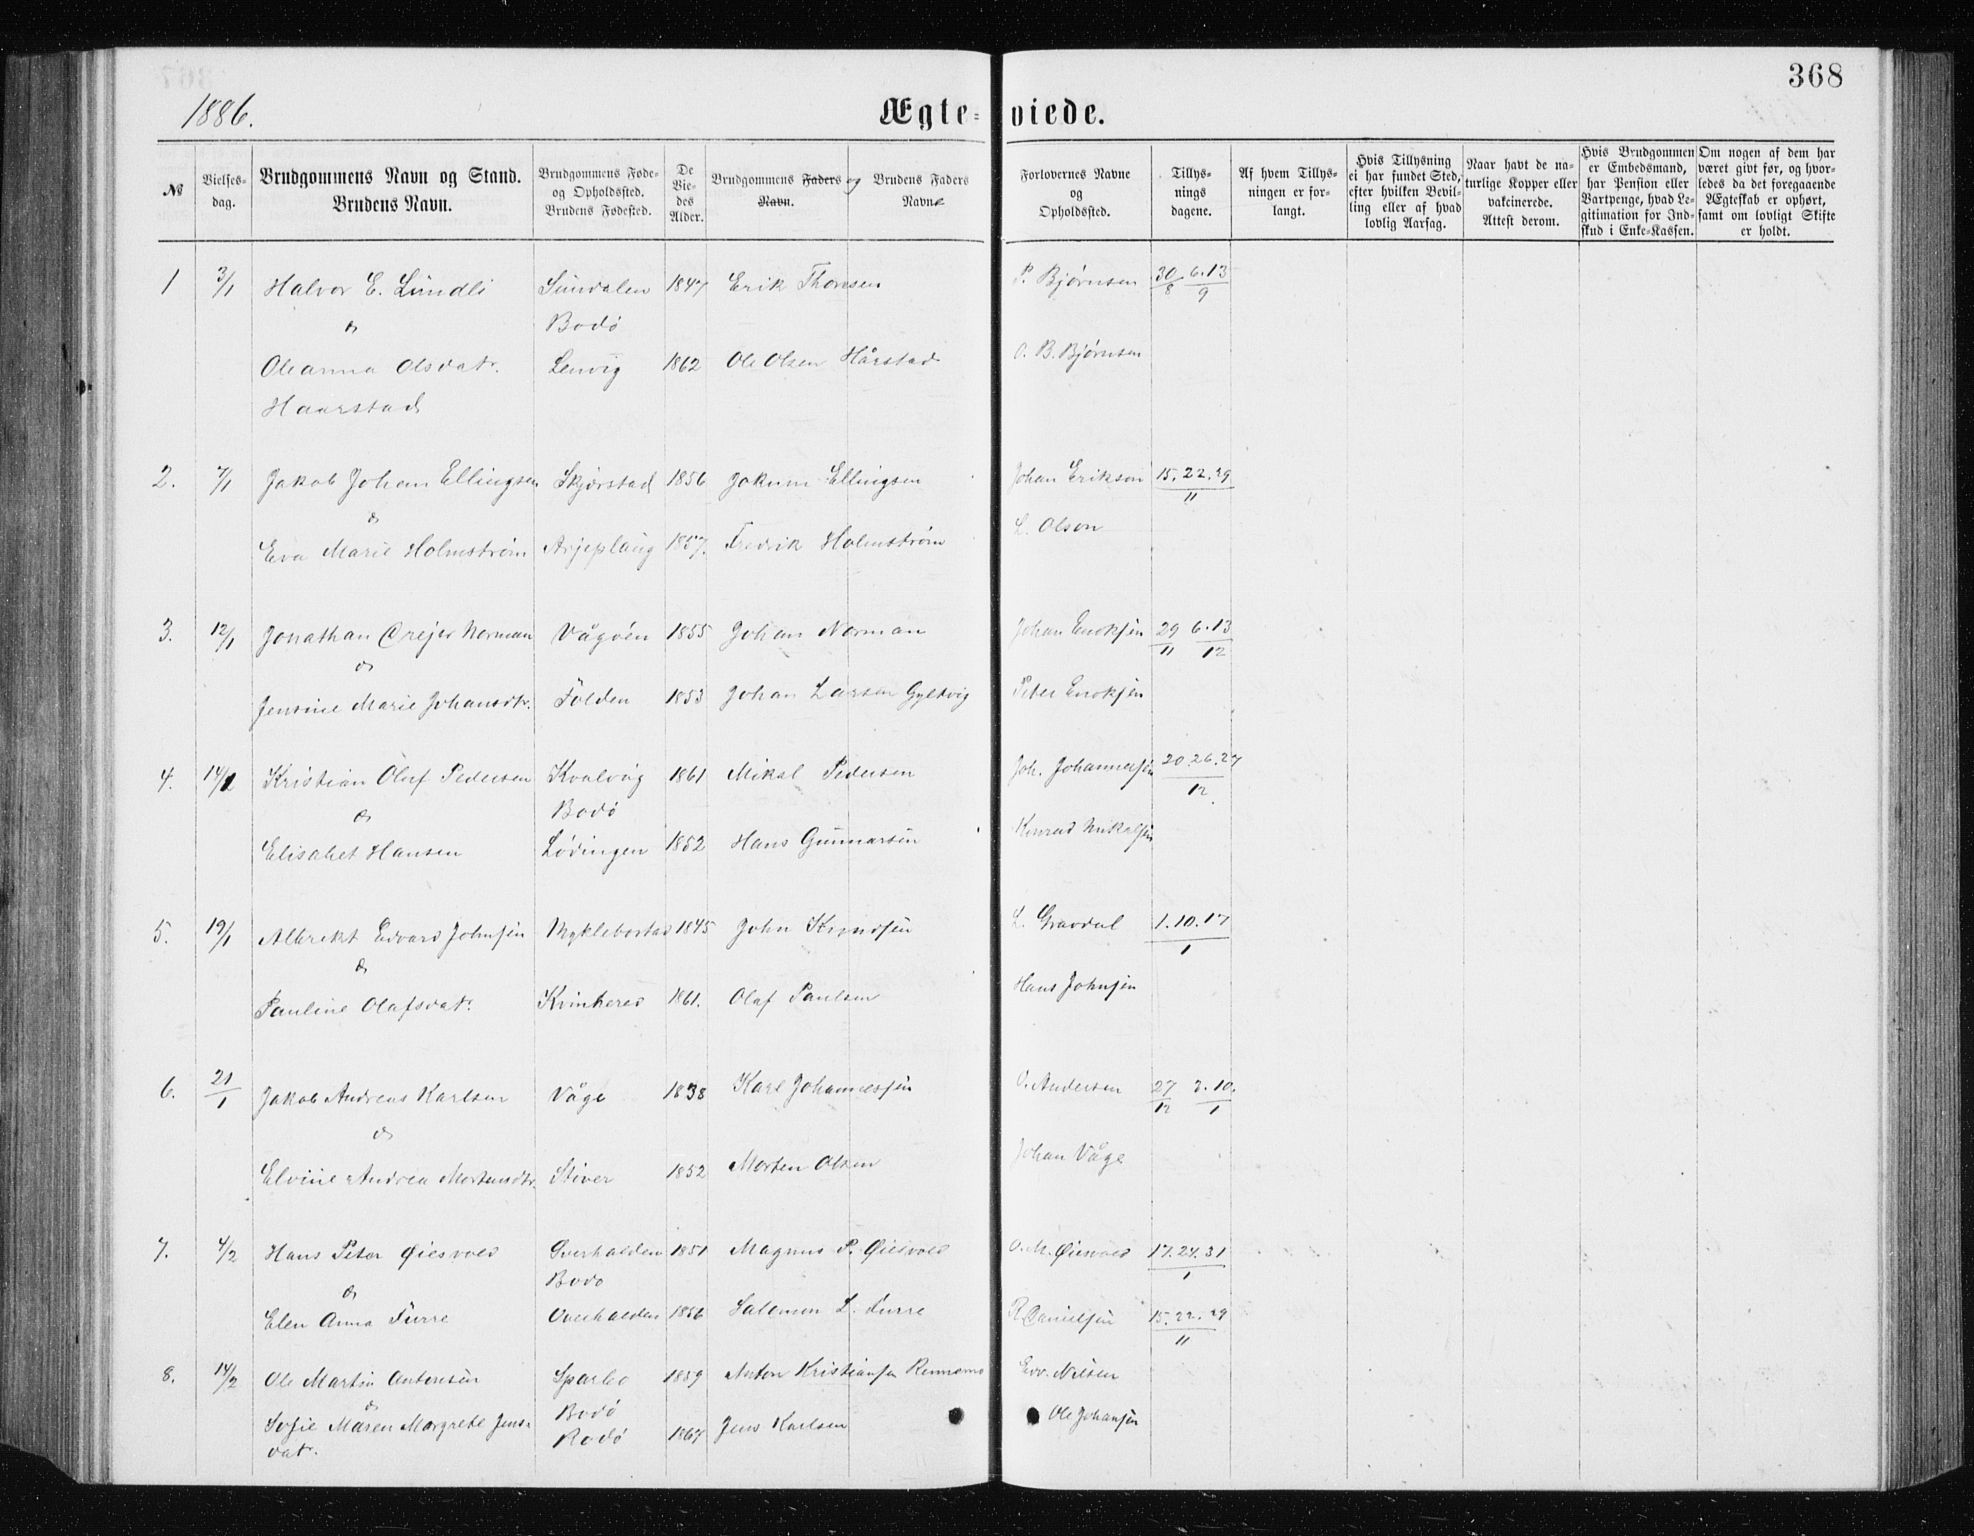 368
1886.
Ægte-viede.
№
Vielses-dag.
Brudgommens Navn og Stand.
Brudens Navn.
Brudgommens Føde- og Opholdssted.
Brudens Fødested.
De Vie-des Alder.
Brudgommens Faders og Brudens Faders
Navn. Navne
Forlovernes Navne
og
Opholdssted.
Tillys-
nings
dagene.
Af hvem Tillys-
ningen er for-
langt.
Hvis Tillysning
ei har fundet Sted,
efter hvilken Bevil-
ling eller af hvad
lovlig Aarsag.
Naar havt de na-
turlige Kopper eller
vakcinerede.
Attest derom.
Hvis Brudgommen
er Embedsmand,
har Pension eller
Vartpenge, hvad Le-
gitimation for Ind-
skud i Enke-Kassen.
Om nogen af dem har
været givt før, og hvor-
ledes da det foregaaende
Ægteskab er ophørt,
samt om lovligt Skifte
er holdt.
1 3/1 Halvor E. Lundli Sundalen 1847 Erik Thoresen P. Bjørnsen 30/8 6.13/9
& Bodø
Oleanna Olsdatr. Lenvig 1862 Ole Olsen Hårstad O. B. Bjørnsen
Haarstad
2. 7/1 Jakob Johan Ellingsen Skjerstad 1856 Jakum Ellingsen Johan Erikson 15.22.29/11
&
Eva Marie Holmstrøm Arjeplaug 1857. Fredrik Holmstrøm L. Olson
3. 12/1 Jonathan Drejer Norman Vågøen 1855 Johan Norman Johan Enoksen 29/11 6.13/12
&
Jensine Marie Johansdtr. Folden 1853 Johan Larsen Gyltvig Peter Enoksen
4. 14/1 Kristian Oluf Pedersen Kvalvåg 1861 Mikal Pedersen Joh. Johannessen 20.26.27/12
& Bodø
Elisabet Hansen Lødingen 1852 Hans Gunnarsen Konrad Mikalsen
5. 19/1 Albrekt Edvard Johnsen Myklebostad 1845 John Knudsen L. Gravdal 1.10.17/1
&
Pauline Olafsdatr. Kvinhered 1861. Olaf Paulsen Hans Johnsen
6. 21/1 Jakob Andreas Karlsen Våge 1838 Karl Johannessen O. Andersen 27/12 3.10./1
&
Elvine Andrea Mortensdtr. Stiver 1852 Morten Olsen Johan Våge
7. 4/2 Hans Peter Øiesvold Overhalden 1851 Magnus P. Øiesvold O. M. Øiesvold 17.24.31/1
& Bodø
Elen Anna Furre Overhalden 1856 Salomon L. Furre R. Danielsen 15.22.29/11
8. 14/2 Ole Martin Antonsen Sparbo 1859 Anton Kristiansen Rennemo Edv. Nilsen
& Bodø
Sofie Maren Margrete Jens- Rødø 1867 Jens Karlsen Ole Johansen
datr.